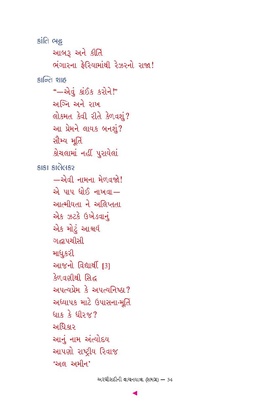 કાંતિ ભટ્ટ
આબરૂ અને કીર્તિ
ભંગારના ફેરિયામાંથી રેઝરનો રાજા!
કાન્તિ શાહ
“—એવું કાંઈક કરોને!”
અગ્નિ અને રાખ
લોકમત કેવી રીતે કેળવશું?
આ પ્રેમને લાયક બનશું?
સૌમ્ય મૂર્તિ
કોચલામાં નહીં પુરાયેલાં
કાકા કાલેલકર
—એવી નામના મેળવજો!
એ પાપ ધોઈ નાખવા—
આત્મીયતા ને અલિપ્તતા
એક ઝટકે ઉખેડવાનું
એક મોટું આશ્ચર્ય
ગદ્યાપચીસી
માધુકરી
આજનો વિદ્યાર્થી [3]
કેળવણીથી સિદ્ધ
અપત્યપ્રેમ કે અપત્યનિષ્ઠા?
અધ્યાપક માટે ઉપાસના-મૂર્તિ
ધાક કે ધીરજ?
અધિકાર
આનું નામ અંત્યોદય
આપણો રાષ્ટ્રીય રિવાજ
‘અલ અમીન’
અરધી સદીની વાચનયાત્રા